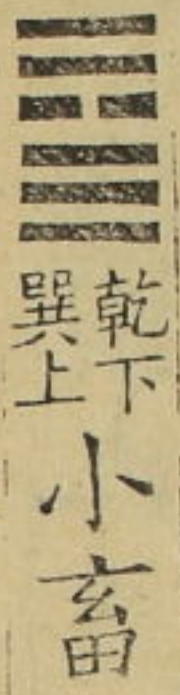 乾下
巽上
小畜